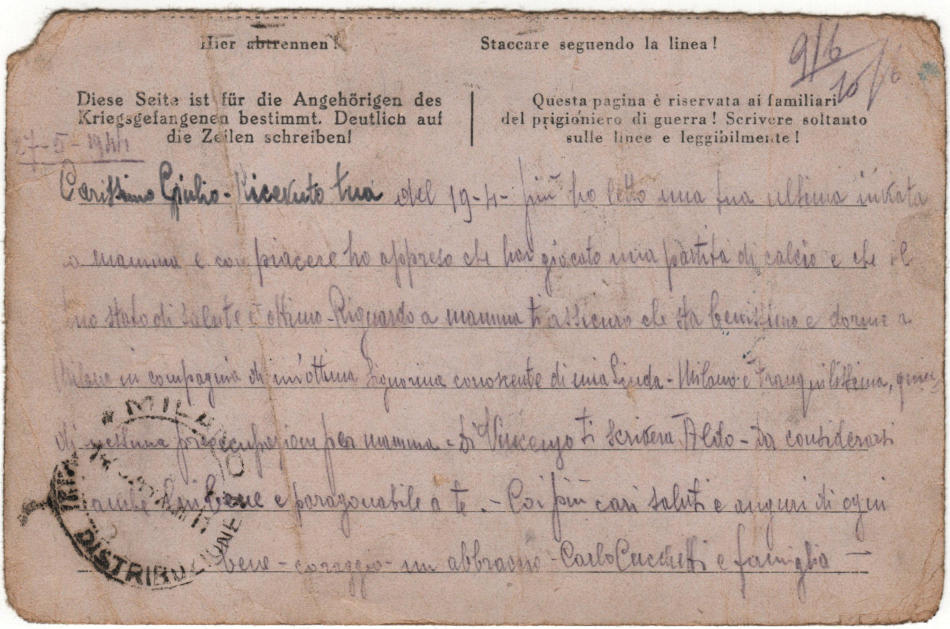 Hier abtrennen!
Staccare seguendo la linea!
9/6
10/6
Diese Seite ist für die Angehörigen des
Kriegsgefangenen bestimmt. Deutlich auf
die Zeilen schreiben!
Questa pagina è riservata ai familiari
del prigioniero di guerra! Scrivere soltanto
sulle linee e leggibilmente!
27-5-1944
Carissimo Giulio - Ricevuto tua del 19-4- più ho letto una tua ultima inviata
a mamma e con piacere ho appreso che hai giocato una partita di calcio e che il
tuo stato di salute è ottimo - Riguardo a mamma ti assicuro che sta benissimo e dorme a
Milano in compagnia di un'ottima Signorina conoscente di mia Linda - Milano è tranquillissima, quindi
di nessuna preoccupazioni per mamma - Di Vincenzo ti scriverà Aldo - Da considerarsi
anche lui bene e paragonabile a te. - Coi più cari saluti e auguri di ogni
bene - coraggio - un abbraccio - Carlo Cucchetti e famiglia -
MILANO
DISTRIBUZIONE